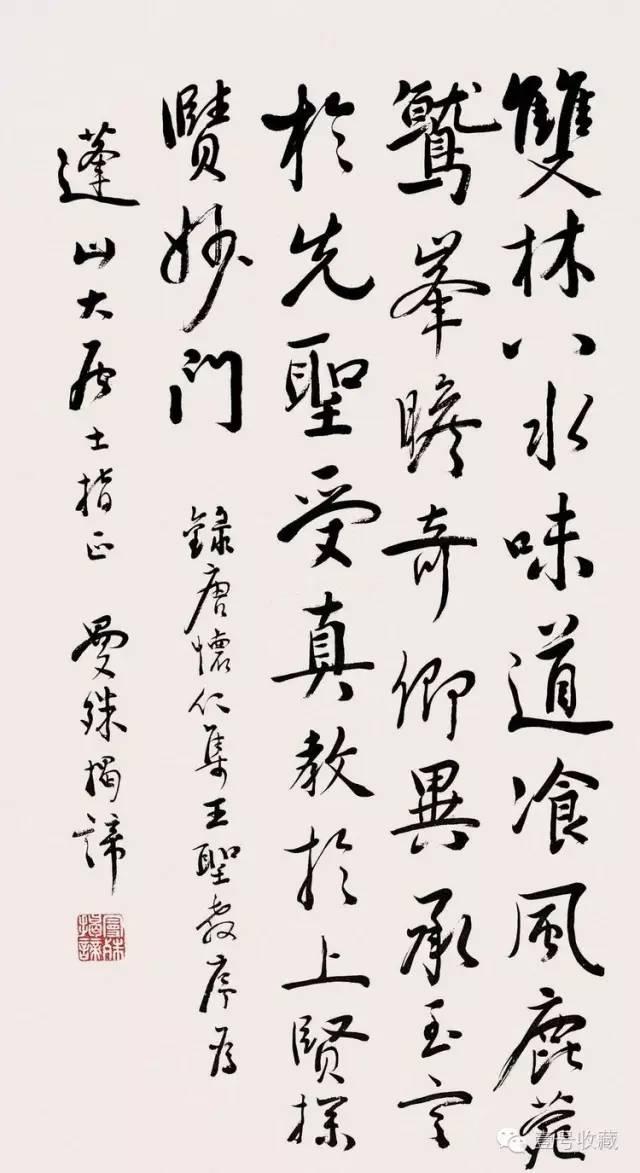 雙林八水味道飡風鹿菀
鷲峯瞻奇仰異承至言
於先聖受真教於上賢探
賾妙門
錄唐懷仁集王聖教序為
蓬山大居士指正 曼殊揭諦
曼殊揭諦
壹号收藏